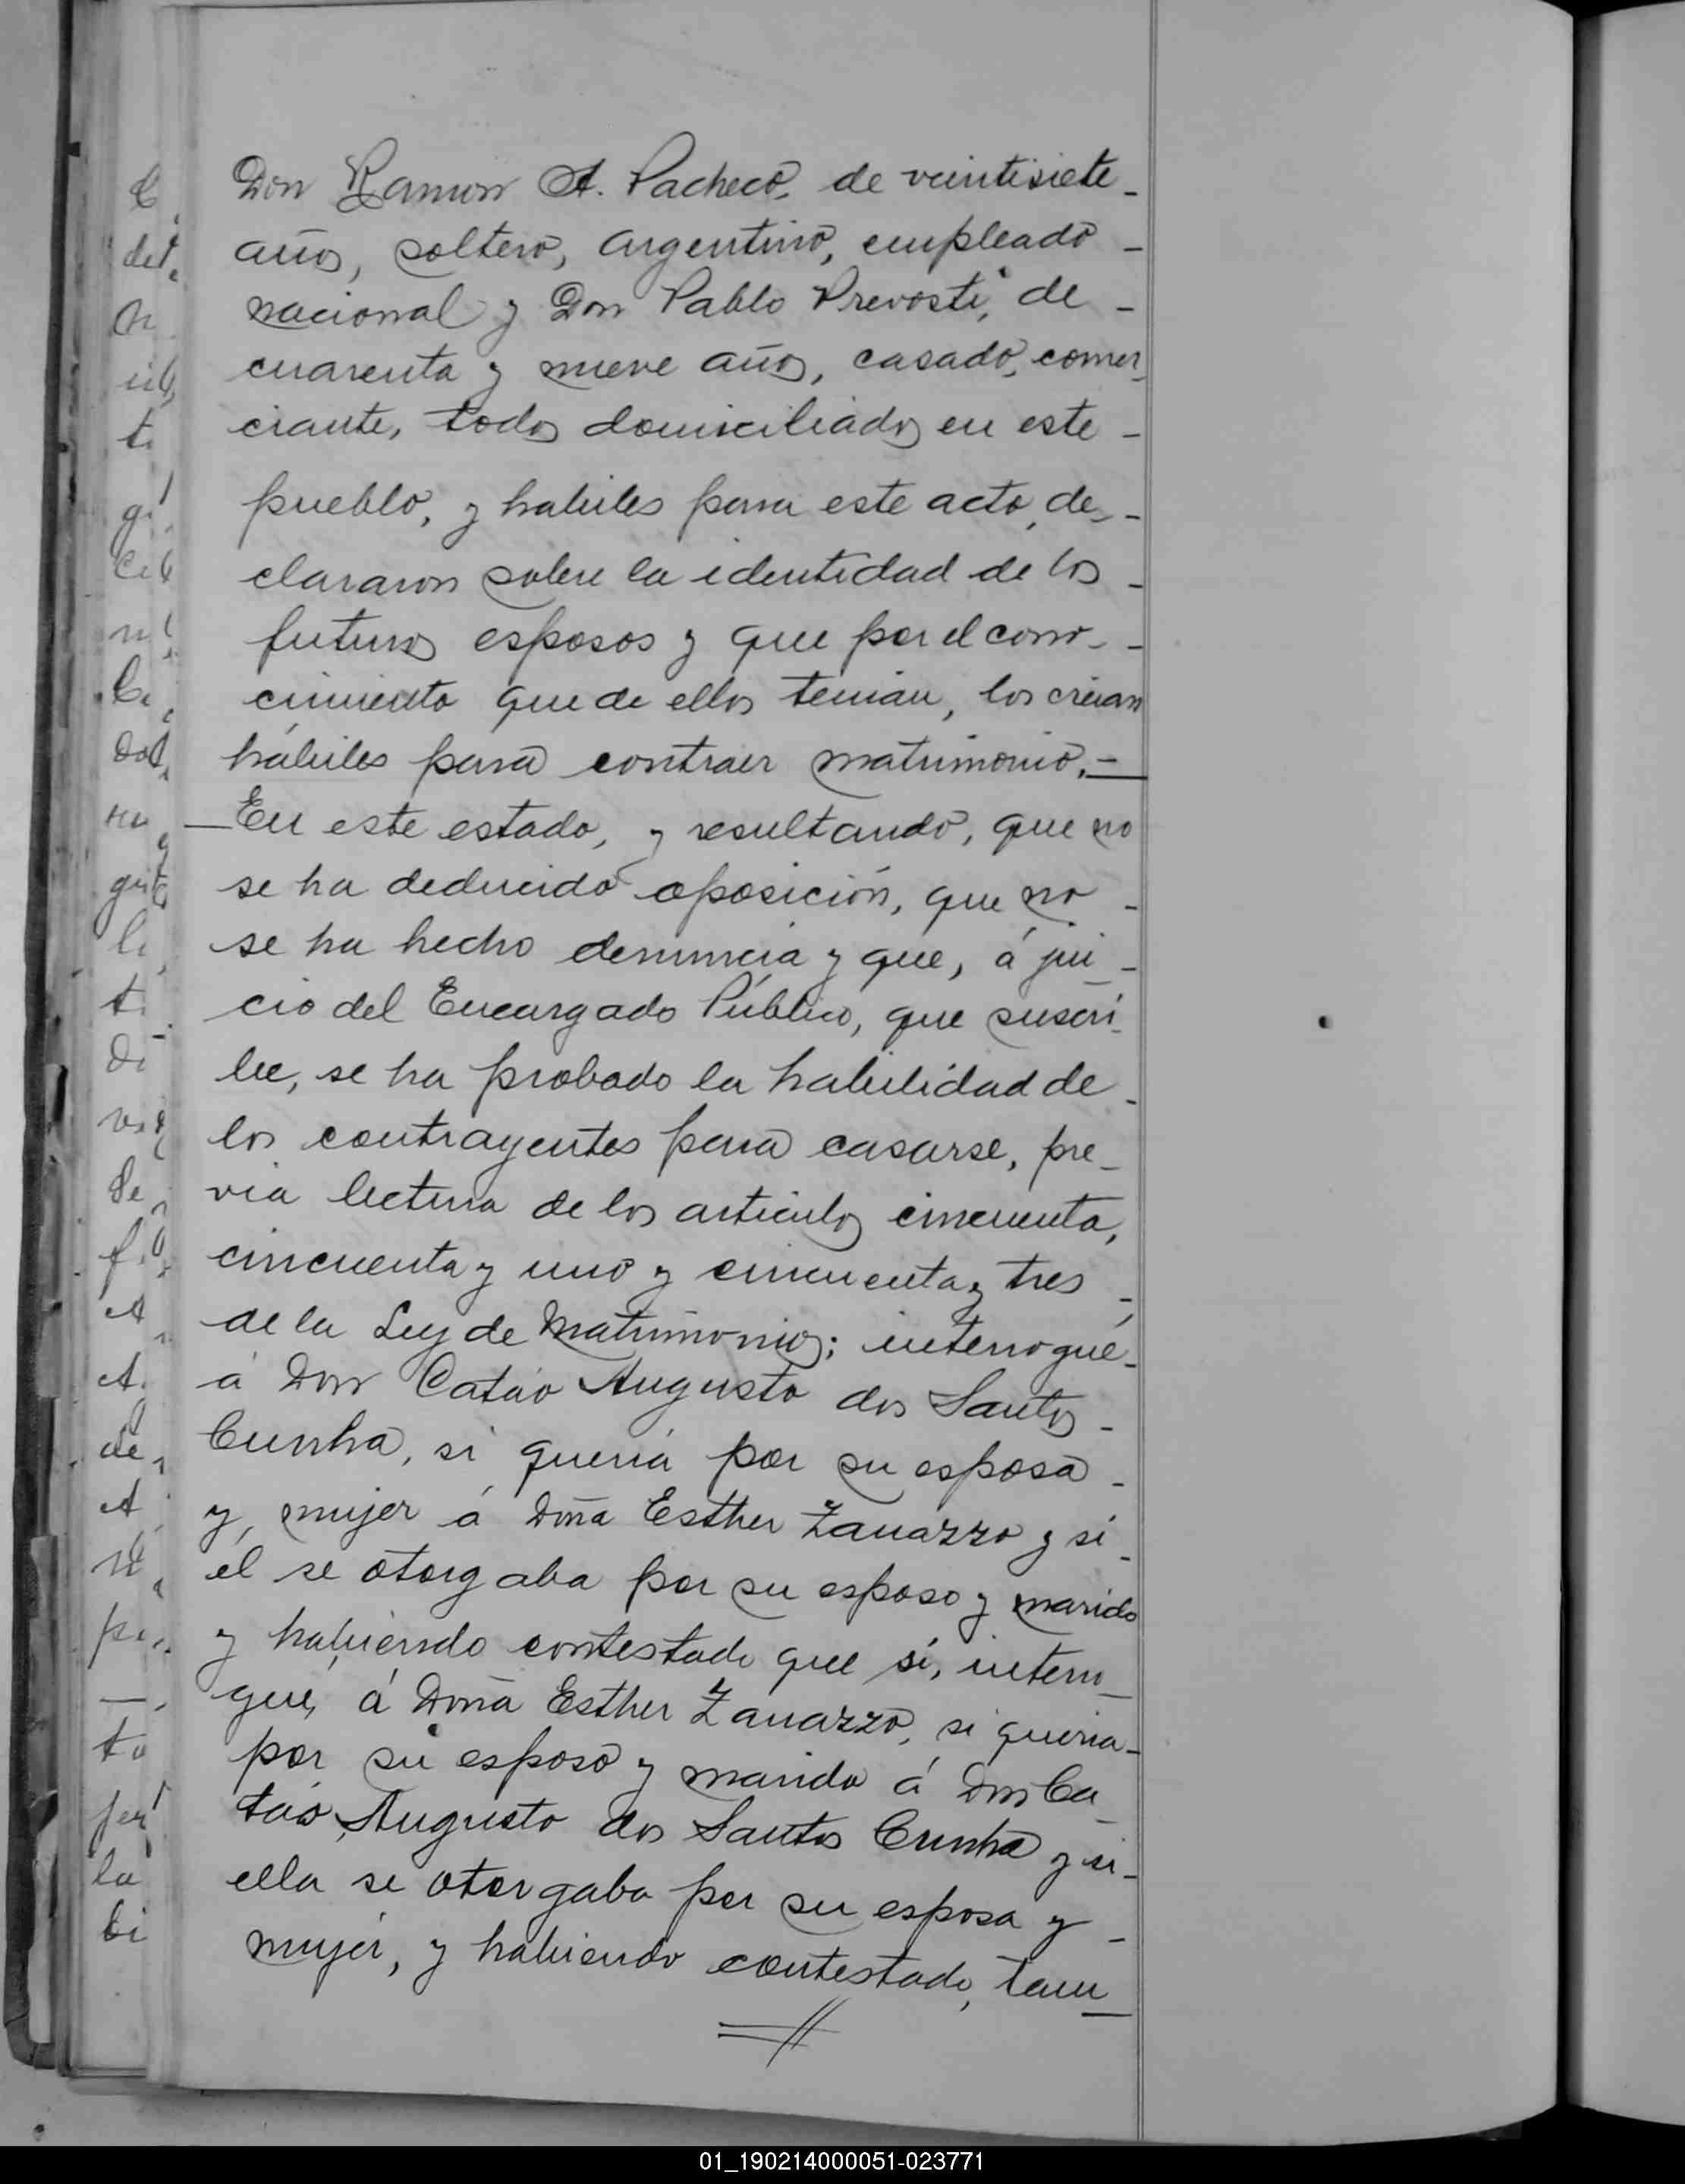 Don Ramon A. Pacheco, de veintisiete -
años, soltero, argentino, empleado -
nacional y Don Pablo Prevosti, de -
cuarenta y nueve años, casado, comer-
ciante, todos domiciliados en este -
pueblo, y habiles para este acto, de- -
clararon sobre la identidad de los -
futuros esposos y que por el cono- -
cimiento que de ellos tenian, los creian
hábiles para contraer matrimonio. —
— En este estado, y resultando, que no
se ha deducido oposición, que no -
se ha hecho denuncia y que, á jui -
cio del Encargado Público, que suscri-
be, se ha probado la habilidad de -
los contrayentes para casarse, pre -
via lectura de los articulos cincuenta,
cincuenta y uno y cincuenta y tres -
de la Ley de Matrimonios; interrogué -
á Don Catáo Augusto dos Santos -
Cunha, si queria por su esposa -
y, mujer á Doña Esther Zanazzo y si -
él se otorgaba por su esposo y marido
y habiendo contestado que sí, interro -
gué, á Doña Esther Zanazzo, si queria -
por su esposo y marido á Don Ca -
táo Augusto dos Santos Cunha y si -
ella se otorgaba por su esposa y -
mujer, y habiendo contestado, tam -
01_190214000051-023771